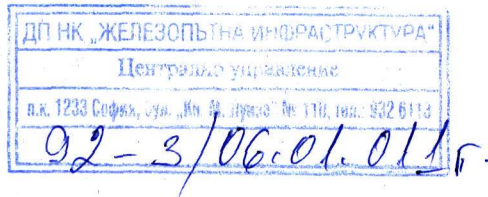 ДП НК „ЖЕЛЕЗОПЪТНА ИНФРАСТРУКТУРА"
Централно управление
п.к. 1233 София, бул. „Кн. М. Луиза" № 110, тел.: 932 6113
92-3/06.01.011г.